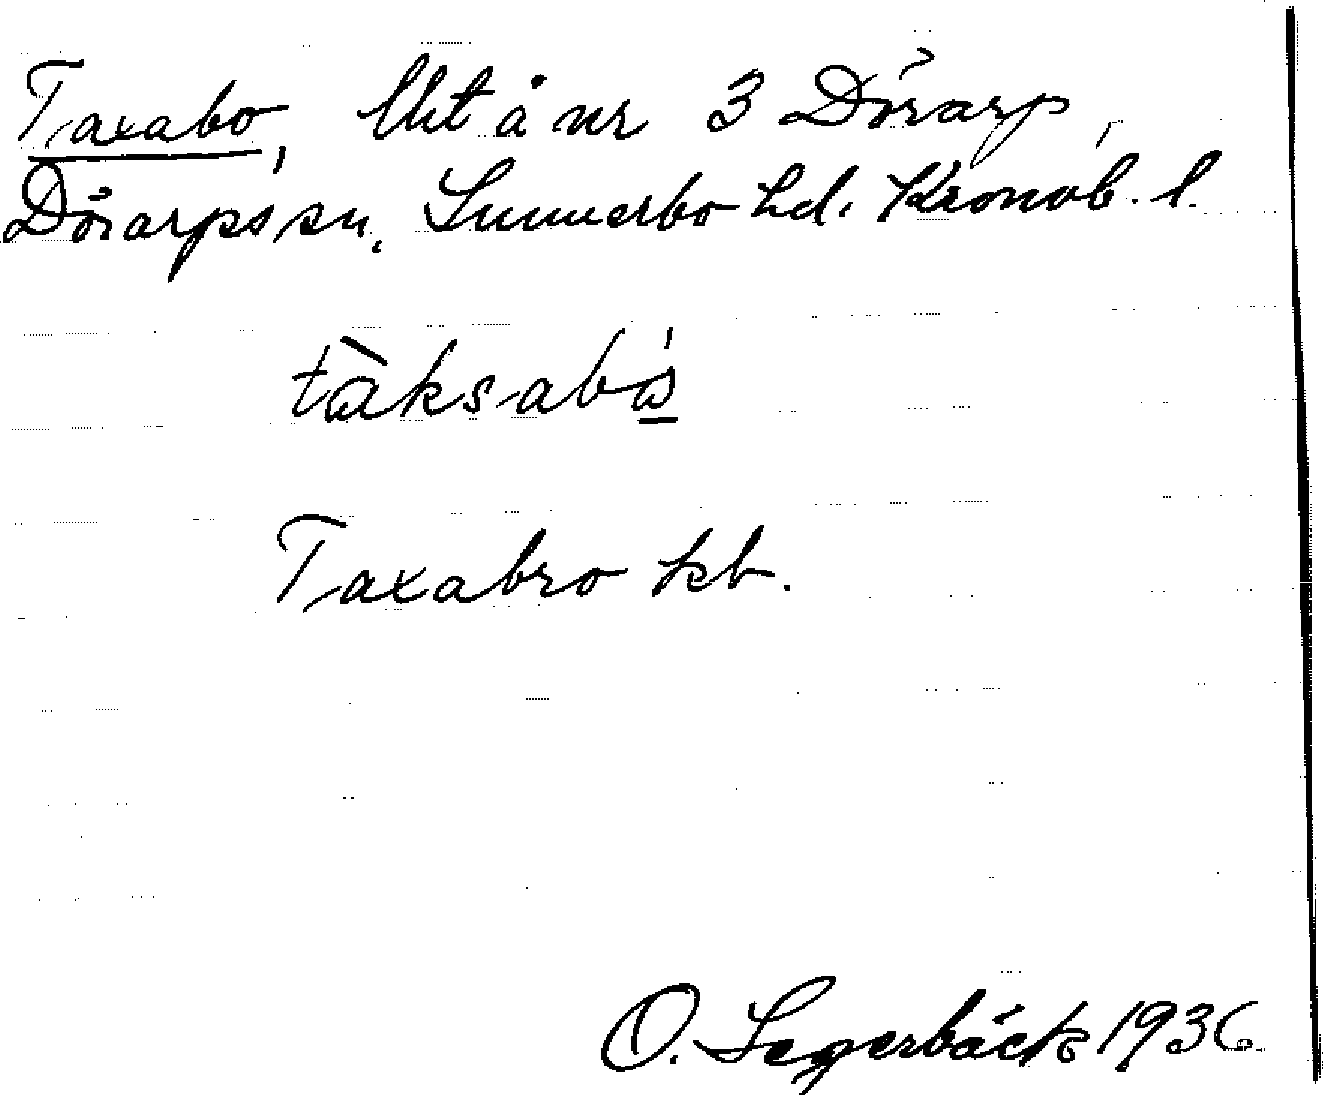 Taxabo, lht å nr 3 Dörarp,
Dörarps sn, Sunnerbo hd. Kronob. l.
tàksabó
Taxabro kb.
O. Segerbäck 1936